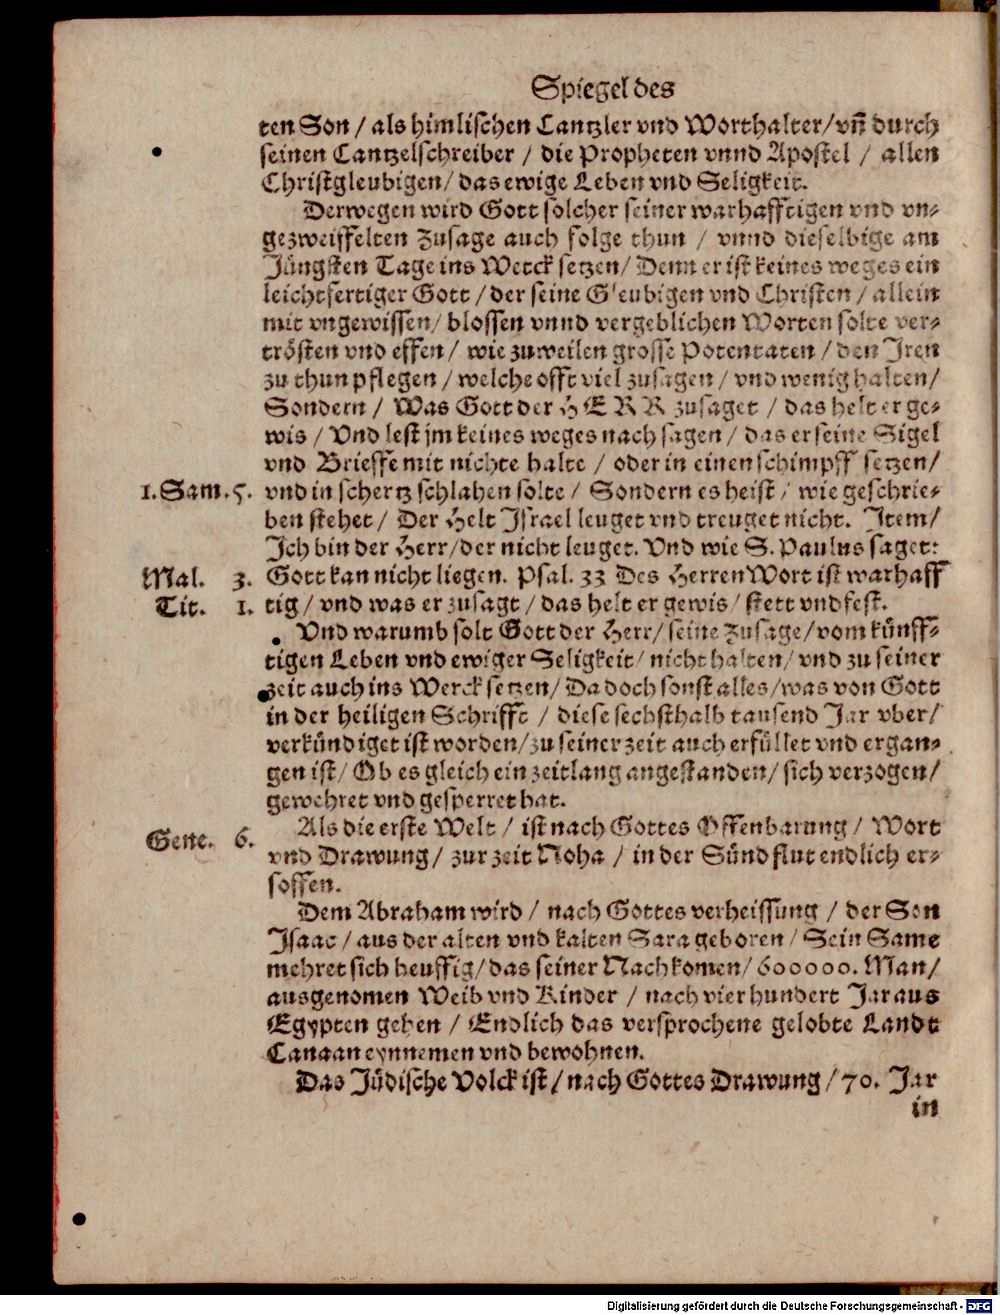 Spiegel des
ten Son / als himlischen Cantzler vnd Worthalter / vñ durch
seinen Cantzelschreiber / die Propheten vnnd Apostel / allen
Christgleubigen / das ewige Leben vnd Seligkeit.
Derwegen wird Gott solcher seiner warhafftigen vnd vn-
gezweiffelten Zusage auch folge thun / vnnd dieselbige am
Jüngsten Tage ins Werck setzen / Denn er ist keines weges ein
leichtfertiger Gott / der seine Gleubigen vnd Christen / allein
mit vngewissen / blossen vnnd vergeblichen Worten solte ver-
trösten vnd effen / wie zuweilen grosse Potentaten / den Jren
zu thun pflegen / welche offt viel zusagen / vnd wenig halten /
Sondern / Was Gott der HERR zusaget / das helt er ge-
wis / Vnd lest jm keines weges nach sagen / das er seine Sigel
vnd Brieffe mit nichte halte / oder in einen schimpff setzen /
1. Sam. 5. vnd in schertz schlahen solte / Sondern es heist / wie geschrie-
ben stehet / Der Helt Israel leuget vnd treuget nicht. Item /
Ich bin der Herr / der nicht leuget. Vnd wie S. Paulus saget:
Mal. 3. Gott kan nicht liegen. Psal. 33 Des Herren Wort ist warhaff
Tit. 1. tig / vnd was er zusagt / das helt er gewis / stett vnd fest.
Vnd warumb solt Gott der Herr / seine Zusage / vom künff-
tigen Leben vnd ewiger Seligkeit / nicht halten / vnd zu seiner
zeit auch ins Werck setzen / Da doch sonst alles / was von Gott
in der heiligen Schrifft / diese sechsthalb tausend Jar vber /
verkündiget ist worden / zu seiner zeit auch erfüllet vnd ergan-
gen ist / Ob es gleich ein zeitlang angestanden / sich verzogen /
gewehret vnd gesperret hat.
Als die erste Welt / ist nach Gottes Offenbarung / Wort
Gene. 6. vnd Drawung / zur zeit Noha / in der Sündflut endlich er-
soffen.
Dem Abraham wird / nach Gottes verheissung / der Son
Isaac / aus der alten vnd kalten Sara geboren / Sein Same
mehret sich heuffig / das seiner Nachkomen / 600000. Man /
ausgenomen Weib vnd Kinder / nach vier hundert Jar aus
Egypten gehen / Endlich das versprochene gelobte Landt
Canaan eynnemen vnd bewohnen.
Das Jüdische Volck ist / nach Gottes Drawung / 70. Jar
in
Digitalisierung gefördert durch die Deutsche Forschungsgemeinschaft - DFG